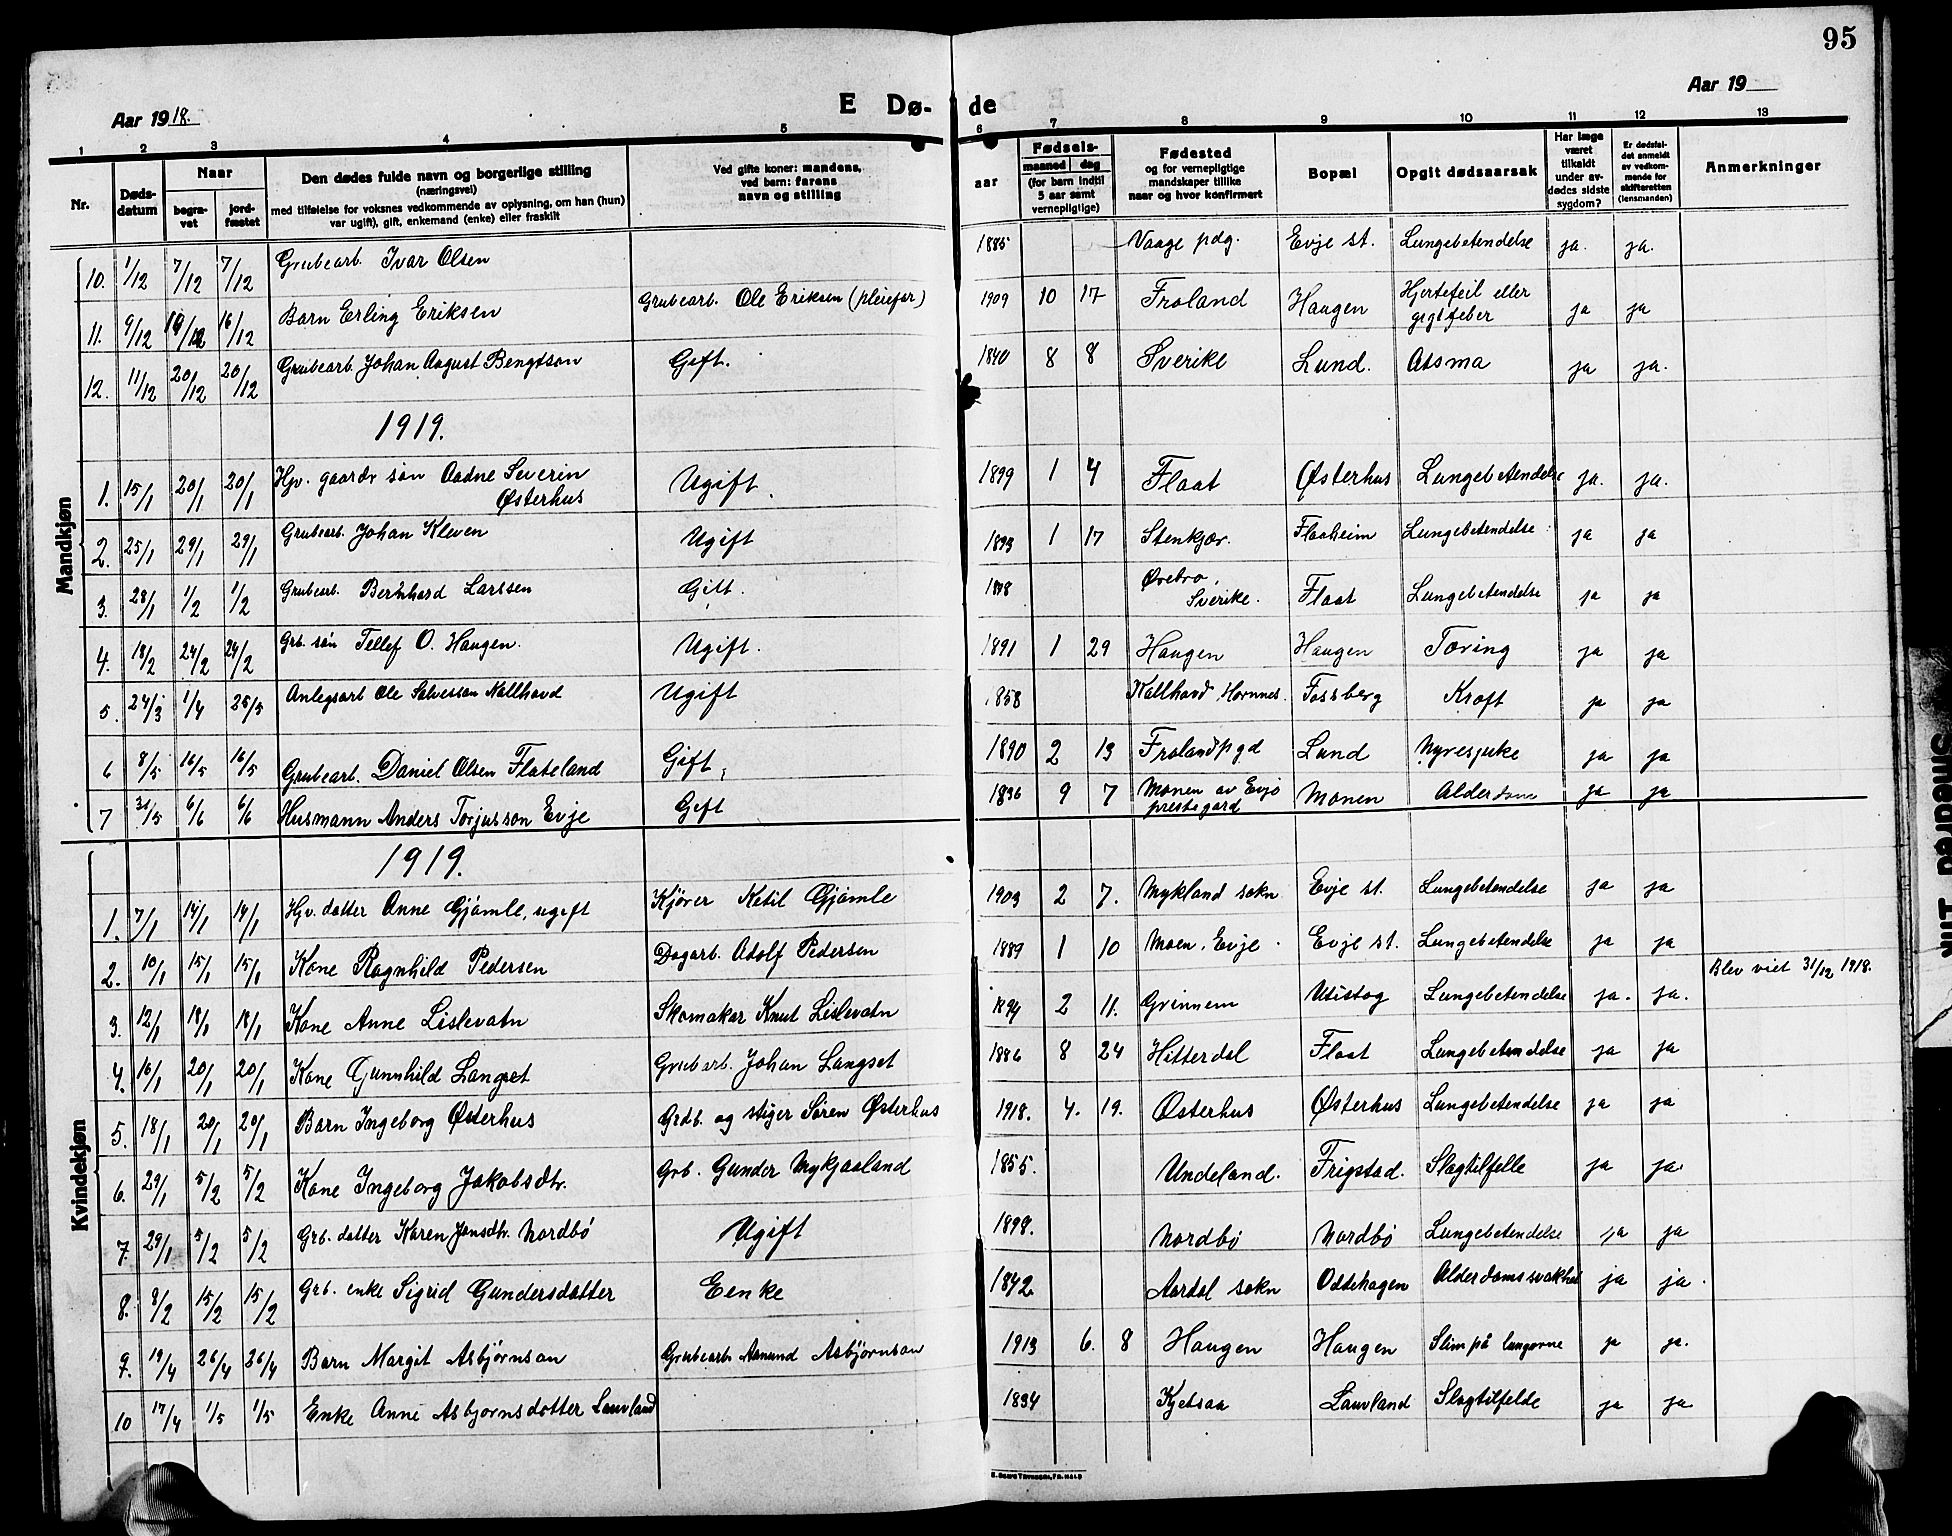 95
Aar 1918.
E Dø-
de
Aar 19
1 2 3 4 5 6 7 8 9 10 11 12 13
Nr. | Døds-datum | Naar begra-vet | jord-fæstet | Den dødes fulde navn og borgerlige stilling (næringsvei) med tilføielse for voksnes vedkommende av oplysning, om han (hun) var ugift), gift, enkemand (enke) eller fraskilt | Ved gifte koner: mandens, ved barn: farens navn og stilling | aar | Fødsels- maaned | dag (for barn indtil 5 aar samt vernepligtige) | Fødested og for vernepligtige mandskaper tillike naar og hvor konfirmert | Bopæl | Opgit dødsaarsak | Har læge været tilkaldt under av-dødes sidste sygdom? | Er dødsfal-det anmeldt av vedkom-mende for skifteretten (lensmanden) | Anmerkninger
Mandkjøn
10. 1/12 7/12 7/12 Grubearb. Ivar Olsen 1885 Vaage pdg. Evje st. Lungebetendelse ja. ja.
11. 9/12 16/12 16/12 Barn Erling Eriksen Grubearb. Ole Eriksen (pleiefar) 1909 10 17 Froland Haugen Hjertefeil eller gigtfeber ja ja
12. 11/12 20/12 20/12 Grubearb. Johan August Bengtson Geft. 1840 8 8 Sverike Lund. Atsma ja ja.
1919.
1. 15/1 20/1 20/1 Hjv. gaardv søn Aadne Severin Østerhus Ugift. 1899 1 4 Flaat Østerhus Lungebetendelse ja. ja.
2. 25/1 29/1 29/1 Grubearb. Johan Kleven Ugift 1893 1 17 Stenkjær. Flaaheim Lungebetendelse ja ja
3. 28/1 1/2 1/2 Grubearb. Bernhard Larssen Gift. Ørebro, Sverike. Flaat Lungebetendelse ja ja
4. 18/2 24/2 24/2 Grb. søn Tellef O. Haugen. Ugift. 1891 1 29 Haugen Haugen Tæring ja ja
5. 24/3 1/4 25/3 Anlegsarb Ole Salvesson Kallhovd Ugift 1858 Kallhovd Hornnes. Fossberg Kræft ja ja
6 8/5 16/5 16/5 Grubearb. Daniel Olsen Flateland Gift, 1890 2 13 Froland pgd Lund Nyresjuke ja ja
7 31/5 6/6 6/6 Husmann Anders Torjusson Evje Gift 1836 9 7 Monen av Evje prestegard Monen Alderdom ja ja
Kvindekjøn
1919.
1. 7/1 14/1 14/1 Hjv. datter Anne Gjømle, ugift Kjører Ketil Gjømle 1903 2 7. Mykland sokn Evje st. Lungebetendelse ja ja
2. 10/1 15/1 15/1 Kone Ragnhild Pedersen Dagarb. Adolf Pedersen 1889 1 10 Moen, Evje. Evje st. Lungebetendelse ja ja
3. 12/1 18/1 18/1 Kone Anne Lislevatn Skomakar Knut Lislevatn 1894 2 11. Grinnem Utistog Lungebetendelse ja. ja. Blev viet 31/12 1918.
4. 16/1 20/1 20/1 Kone Gunnhild Langset Grubearb. Johan Langset 1886 8 24 Hitterdal Flaat Lungebetendelse ja ja
5. 18/1 20/1 20/1 Barn Ingeborg Østerhus Grdb. og stiger Søren Østerhus 1918. 4. 19. Østerhus Østerhus Lungebetendelse ja ja
6. 29/1 5/2 5/2 Kone Ingeborg Jakobsdtr. Grb. Gunder Mykjaaland 1855. Undeland. Frigstad. Slagtilfelle ja ja.
7. 29/1 5/2 5/2 Grb. datter Karen Jensdtr. Nordbø Ugift 1898. Nordbø Nordbø Lungebetendelse ja ja
8. 8/2 15/2 15/2 Grb. enke Sigrid Gundersdatter Eenke 1842 Aardal sokn Oddehagen Alderdomssvakhet ja ja.
9. 19/4 26/4 26/4 Barn Margit Asbjørnson Grubearb. Asmund Asbjørnson 1913 6. 8 Haugen Haugen Slim på lungerne ja ja.
10 17/4 1/5 1/5 Enke Anne Asbjørnsdotter Lauvland 1834 Kjetsaa Lauvland Slagtilfelde ja ja